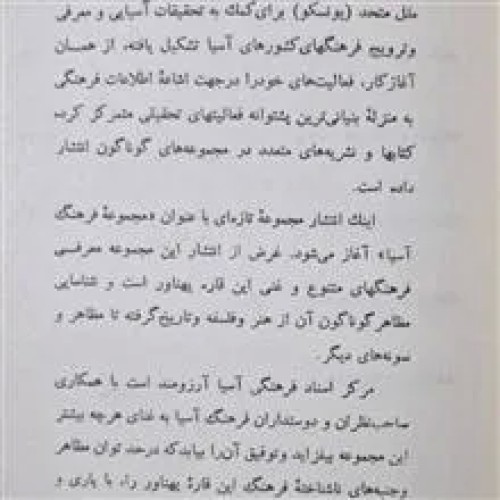 ملل متحد (یونسکو) برای کمک به تحقیقات آسیایی و معرفی
و ترویج فرهنگهای کشورهای آسیا تشکیل یافته، از همان
آغاز کار، فعالیت‌های خود را در جهت اشاعهٔ اطلاعات فرهنگی
به منزلهٔ بنیانی‌ترین پشتوانه فعالیتهای تحقیقی متمرکز کرده
کتابها و نشریه‌های متعدد در مجموعه‌های گوناگون انتشار
داده است.
اینک انتشار مجموعهٔ تازه‌ای با عنوان «مجموعهٔ فرهنگ
آسیا» آغاز می‌شود. غرض از انتشار این مجموعه معرفی
فرهنگهای متنوع و غنی این قاره پهناور است و شناسایی
مظاهر گوناگون آن از هنر و فلسفه و تاریخ گرفته تا مظاهر و
نمونه‌های دیگر.
مرکز اسناد فرهنگی آسیا آرزومند است با همکاری
صاحب‌نظران و دوستداران فرهنگ آسیا به غنای هرچه بیشتر
این مجموعه بیفزاید و توفیق آن را بیابد که در حد توان مظاهر
و جنبه‌های ناشناختهٔ فرهنگ این قارهٔ پهناور را، با یاری و